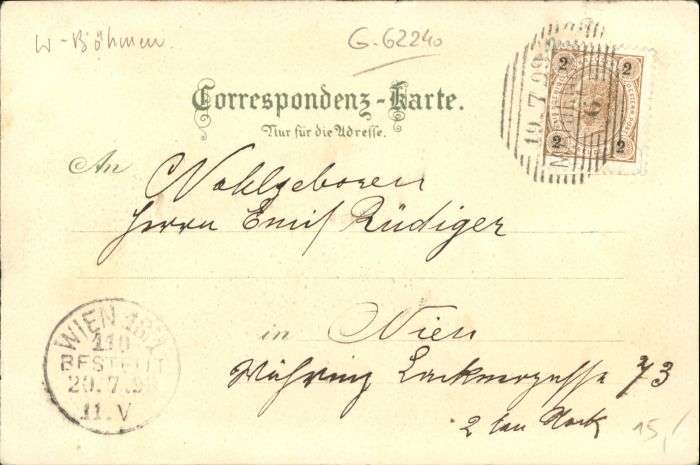 W-Böhmen.
G. 62240
Correspondenz-Karte.
Nur für die Adresse.
2 2
2 2
19.7.99
An Wohlgeboren
Herrn Emil Rüdiger
in Wien
Währing Lacknergasse 73
2ten Stock
WIEN 18/1
110
BESTELLT
20.7.99
11.V
15,-